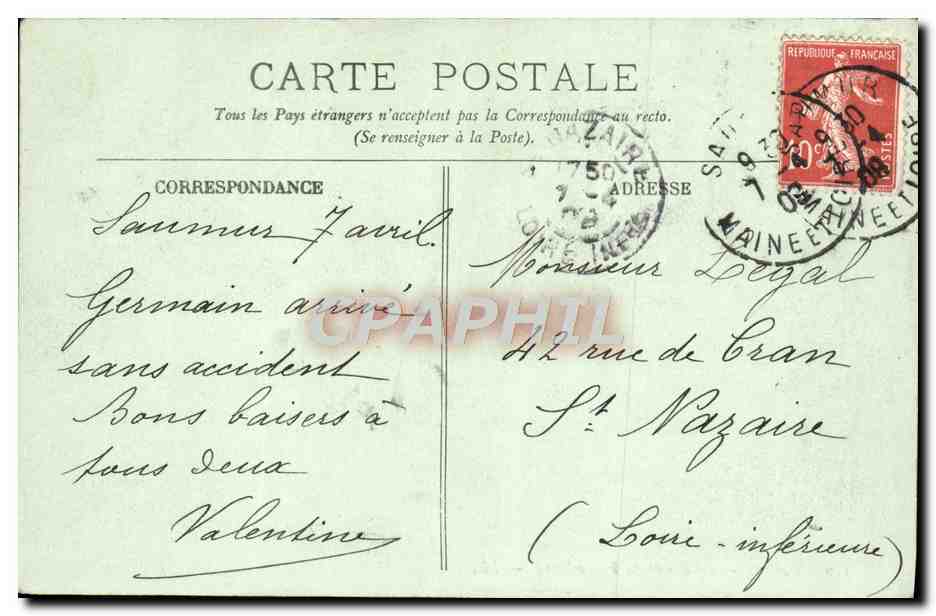 CARTE POSTALE
Tous les Pays étrangers n'acceptent pas la Correspondance au recto.
(Se renseigner à la Poste).
CORRESPONDANCE
Saumur 7 avril.
Germain arrivé
sans accident
Bons baisers à
tous deux
Valentine
ADRESSE
Monsieur Legal
42 rue de Cran
St. Nazaire
(Loire-inférieure)
REPUBLIQUE FRANÇAISE
POSTES
SAUMUR
MAINE ET LOIRE
NAZAIRE
LOIRE INFRE
CPAPHIL